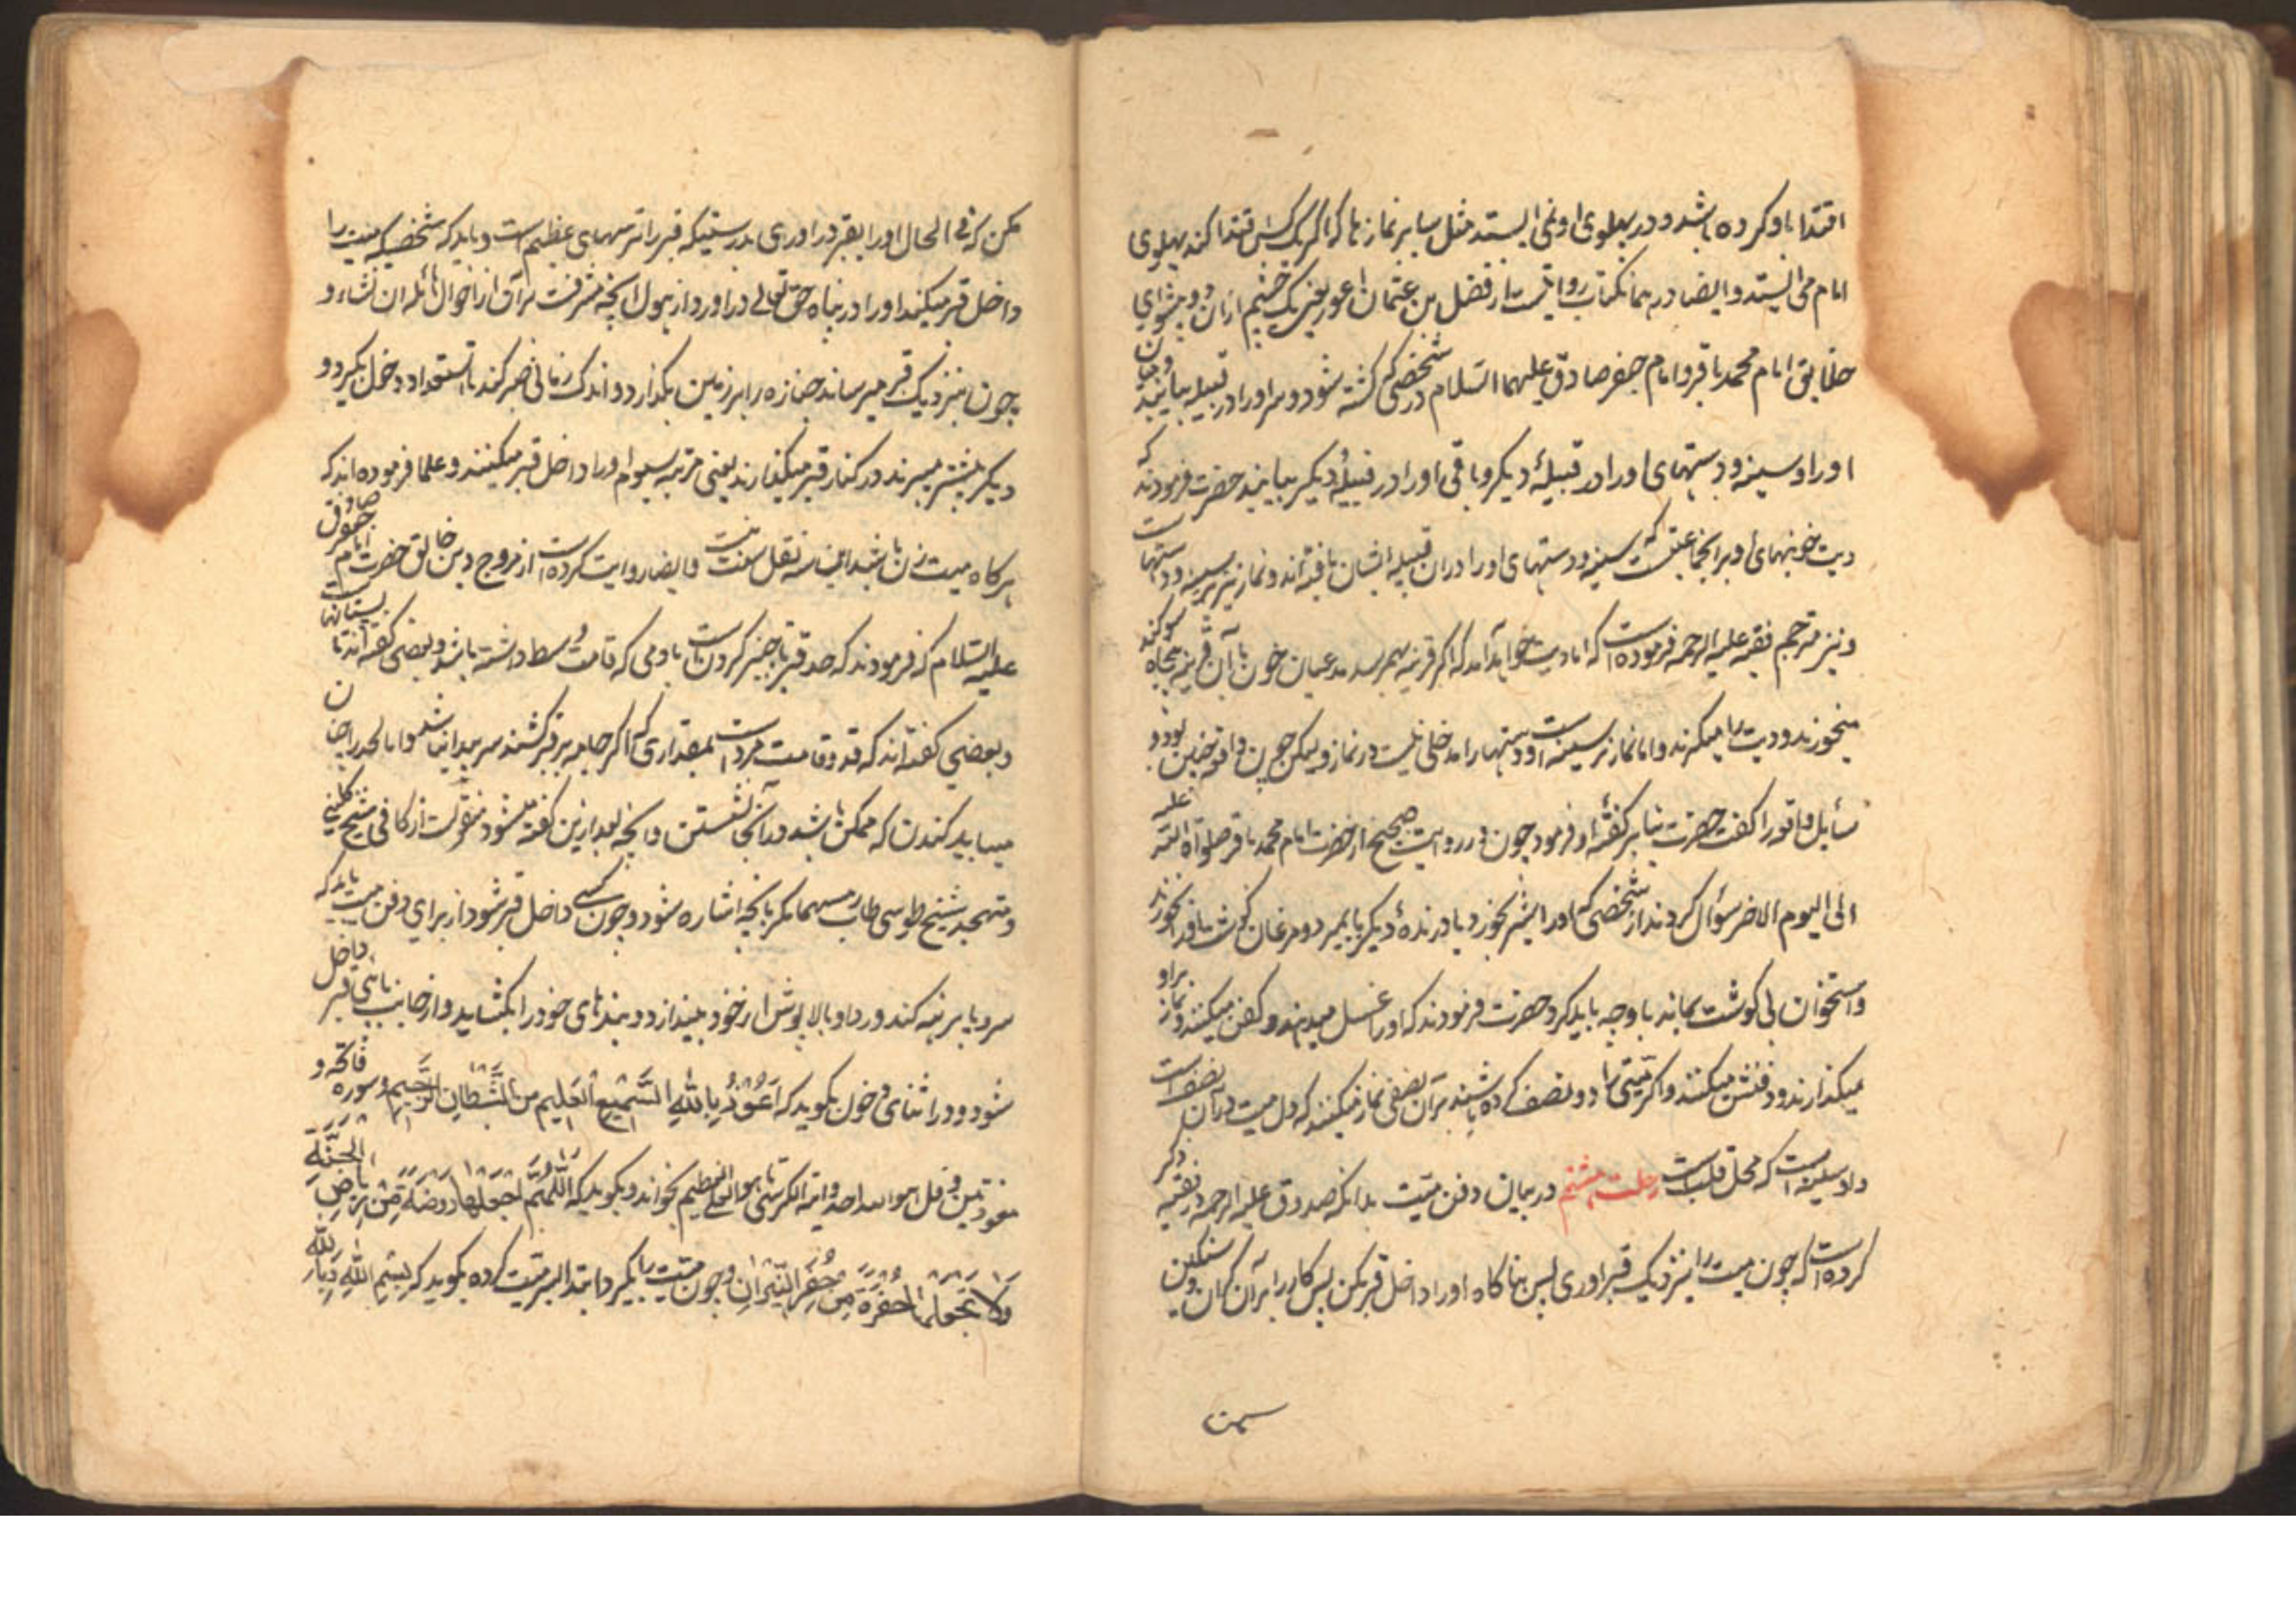 اقتدا باو کرده باشد و در پهلوی او نمی ایستد مثل سایر نمازها که اگر یک کس اقتدا کند پهلوی
امام می ایستد و ایضا در همان کتاب روایتست از فضل بن عثمان اعور یعنی یک چشم از آن دو پیشوای
خلایق امام محمد باقر و امام جعفر صادق علیهما السلام در شخصی که کشته شود و سر او را در قبیله بیابند و میان
او را و سینه و دستهای او را در قبیلهٔ دیگر و باقی او را در قبیلهٔ دیگر بیابند حضرت فرمودند که
دیت خونبهای او بر انجماعتیست که سینه و دستهای او را در ان قبیله ایشان یافته اند و نماز نیز بر سینه و دستهاست
و نیز مترجم فقیه علیه الرحمه فرموده است که احادیث خواهد آمد که اگر قرینه بهم رسد مدعیان خون با آن قرینه پنجاه سوکند
میخورند و دیت را میگیرند و اما نماز بر سینه است و دستها را مدخلی نیست در نماز و لیکن چون واقع چنین بود و
سایل واقع را گفت حضرت بنابر گفتهٔ او فرمود چون در روایت صحیح از حضرت امام محمد باقر صلوات الله علیه
الی الیوم الاخر سؤال کردند از شخصی که او را شیر بخورد یا درندهٔ دیگر یا بمیرد و مرغان گوشت او را بخورند
و استخوان بی گوشت بماند با او چه باید کرد حضرت فرمودند که او را غسل میدهند و کفن میکنند و نماز بر او
میکذارند و دفنش میکنند و اگر میتی را دو نصف کرده باشند بر آن نصفی نماز میکنند که دل میت در آن نصف است
و ان سینه است که محل قلب است رحلت هشتم در بیان دفن میت بدانکه صدوق علیه الرحمه در فقیه ذکر
کرده است که چون میت را بنزدیک قبر اوری پس بناگاه او را داخل قبر مکن پس کار را بر آن گران و سنگین
مکن که فی الحال او را بقبر در اوری بدرستیکه قبر را ترسهای عظیم است و باید که شخصیکه میت را
داخل قبر میکند او را در پناه حق تعالی در اورد از هول انچه مشرفست بر آن از احوال هائله ان نشاء و
چون بنزدیک قبر میرساند جنازه را بر زمین بگذارد و اندک زمانی صبر کند تا استعداد دخول بگیرد و
دیگر پیشتر میبرند در کنار قبر میگذارند یعنی مرتبه سیوم او را داخل قبر میکنند و علما فرموده اند که
هرگاه میت زن باشد این سه نقل سنت نیست و ایضا روایت کرده است از مروج دین خالق حضرت امام جعفر صادق
علیه السلام که فرمودند که حد قبر تا چنبر گردن است بادمی که قامت وسط داشته باشد و بعضی گفته اند تا پستانهاست
و بعضی گفته اند که قد و قامت مرد است بمقداری که اگر جامه بر قبر کشند سر میت ان شود و اما لحد را چنان
میباید کندن که ممکن باشد در آنجا نشستن و انچه بعد ازین گفته میشود منقولست از کافی شیخ کلینی
و تهجد شیخ طوسی طاب رمسهما مگر بانچه اشاره شود و چون کسی داخل قبر شود از برای دفن میت باید که
سر و پا برهنه کند و ردا و بالاپوش از خود بیندازد و بندهای خود را بگشاید و از جانب پاهای قبر داخل
شود و در اثنای دخول بگوید که اَعُوذُ بِاللهِ السَّمیعِ العَلیمِ مِنَ الشَّیطانِ الرَّجیمِ و سوره فاتحه و
معوذتین و قل هو الله احد و ایة الکرسی تا هو العلی العظیم بخواند و بگوید که اَللّهُمَّ اجعَلها رَوضَةً مِن رِیاضِ الجَنَّةِ
وَلا تَجعَلها حُفرَةً مِن حُفَرِ النّیرانِ و چون میت را بگیرد ابتدا بسر میت کرده بگوید که بِسمِ اللهِ وَ بِاللهِ